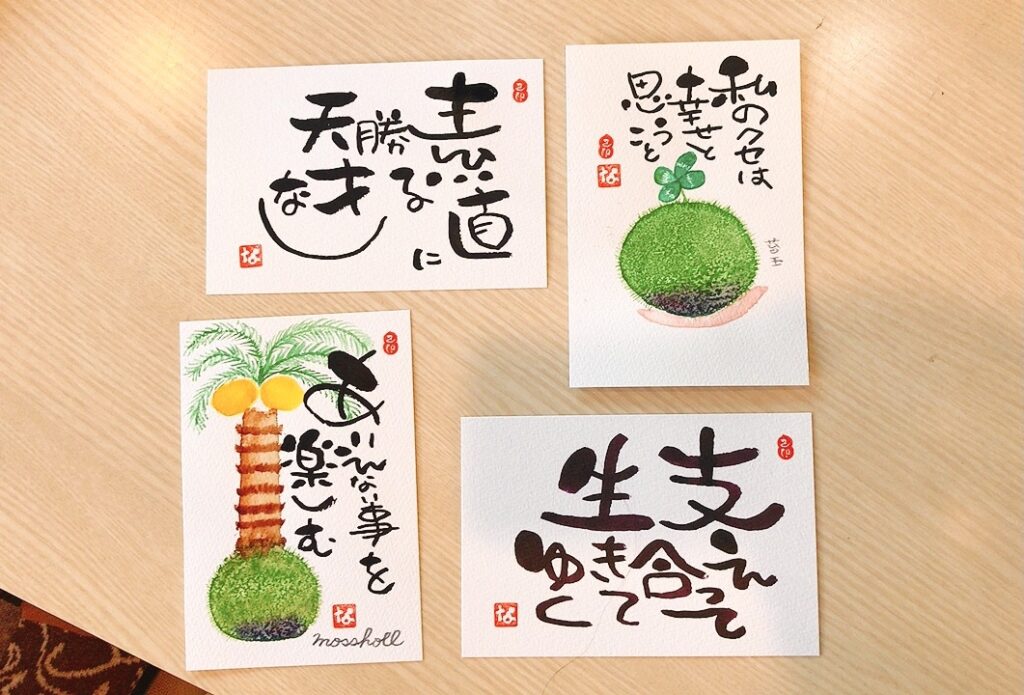 素直に
勝る
天才
なし
な
私のクセは
幸せと
思うこと
な
苔玉
ありえない事を
楽しむ
な
mossholl
支え合って
生きてゆく
な